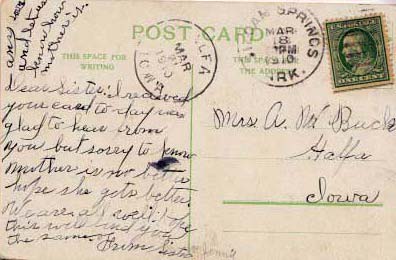 and let us
know how
mother is.
POST CARD
THIS SPACE FOR
WRITING
THIS SPACE
THE ADD
ALFA
MAR
IOWA
SPRINGS
MAR
8
PM
1910
ARK.
Dear Sister I received
your card to day was
glad to hear from
you but sorry to know
mother is not better
hope she gets better
We are all well hope
this will find you
the same.
From Sister
Mrs A. Mc Buck
Halfa
Iowa